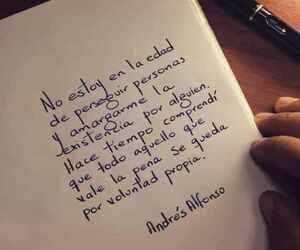 No estoy en la edad
de perseguir personas
y amargarme la
existencia por alguien.
Hace tiempo comprendí
que todo aquello que
vale la pena se queda
por voluntad propia.
Andrés Alfonso